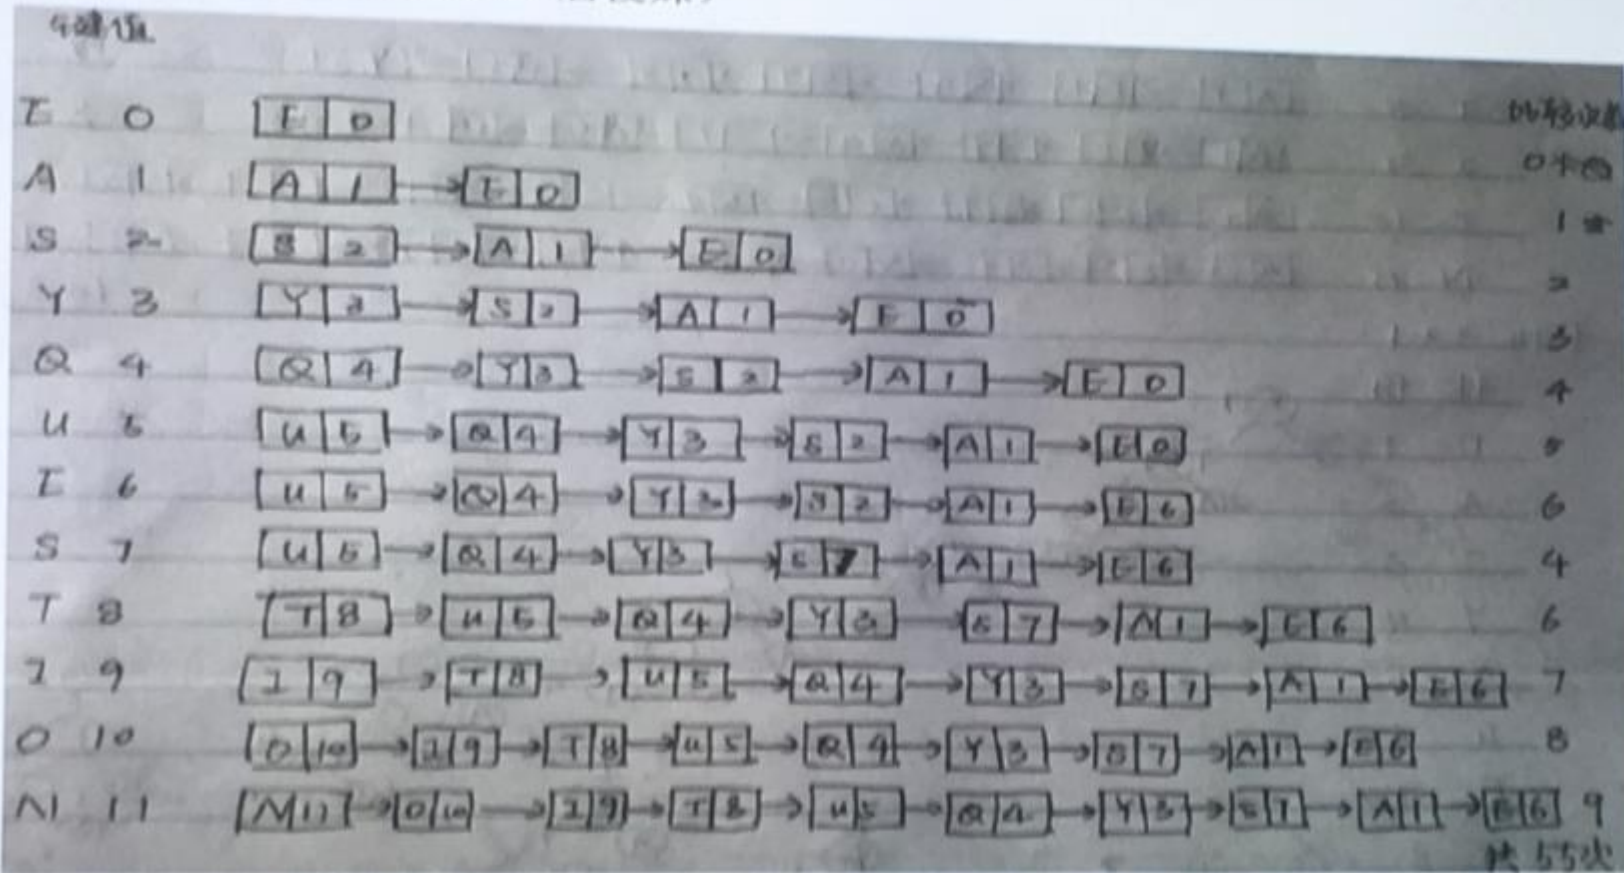 键值
比较次数
E 0 E 0
0
A 1 A 1 E 0
1
S 2 S 2 A 1 E 0
2
Y 3 Y 3 S 2 A 1 E 0
3
Q 4 Q 4 Y 3 S 2 A 1 E 0
4
U 5 U 5 Q 4 Y 3 S 2 A 1 E 0
5
E 6 U 5 Q 4 Y 3 S 2 A 1 E 6
6
S 7 U 5 Q 4 Y 3 S 7 A 1 E 6
4
T 8 T 8 U 5 Q 4 Y 3 S 7 A 1 E 6
6
I 9 I 9 T 8 U 5 Q 4 Y 3 S 7 A 1 E 6 7
O 10 O 10 I 9 T 8 U 5 Q 4 Y 3 S 7 A 1 E 6 8
N 11 N 11 O 10 I 9 T 8 U 5 Q 4 Y 3 S 7 A 1 E 6 9
共55次